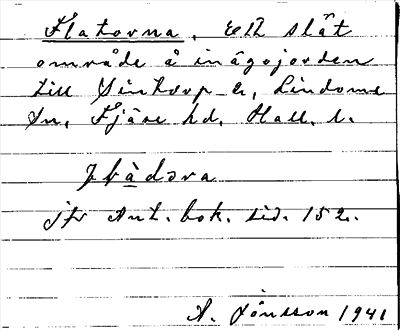 Flatorna, Ett slät
område å inägojorden
till Sintorp 2, Lindome
sn, Fjäre hd. Hall. l.
jfr Ant. bok. sid. 152.
A. Jönsson 1941